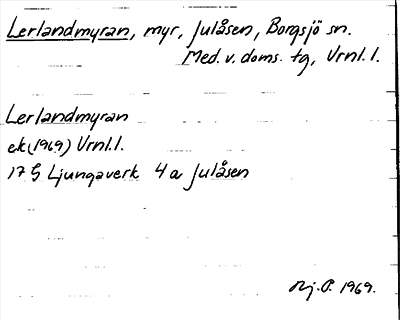 Lerlandmyran, myr, Julåsen, Borgsjö sn.
Med. v. doms. tg, Vrnl. l.
Lerlandmyran
ek (1969) Vrnl. l.
17 G Ljungaverk 4 a Julåsen
1969.